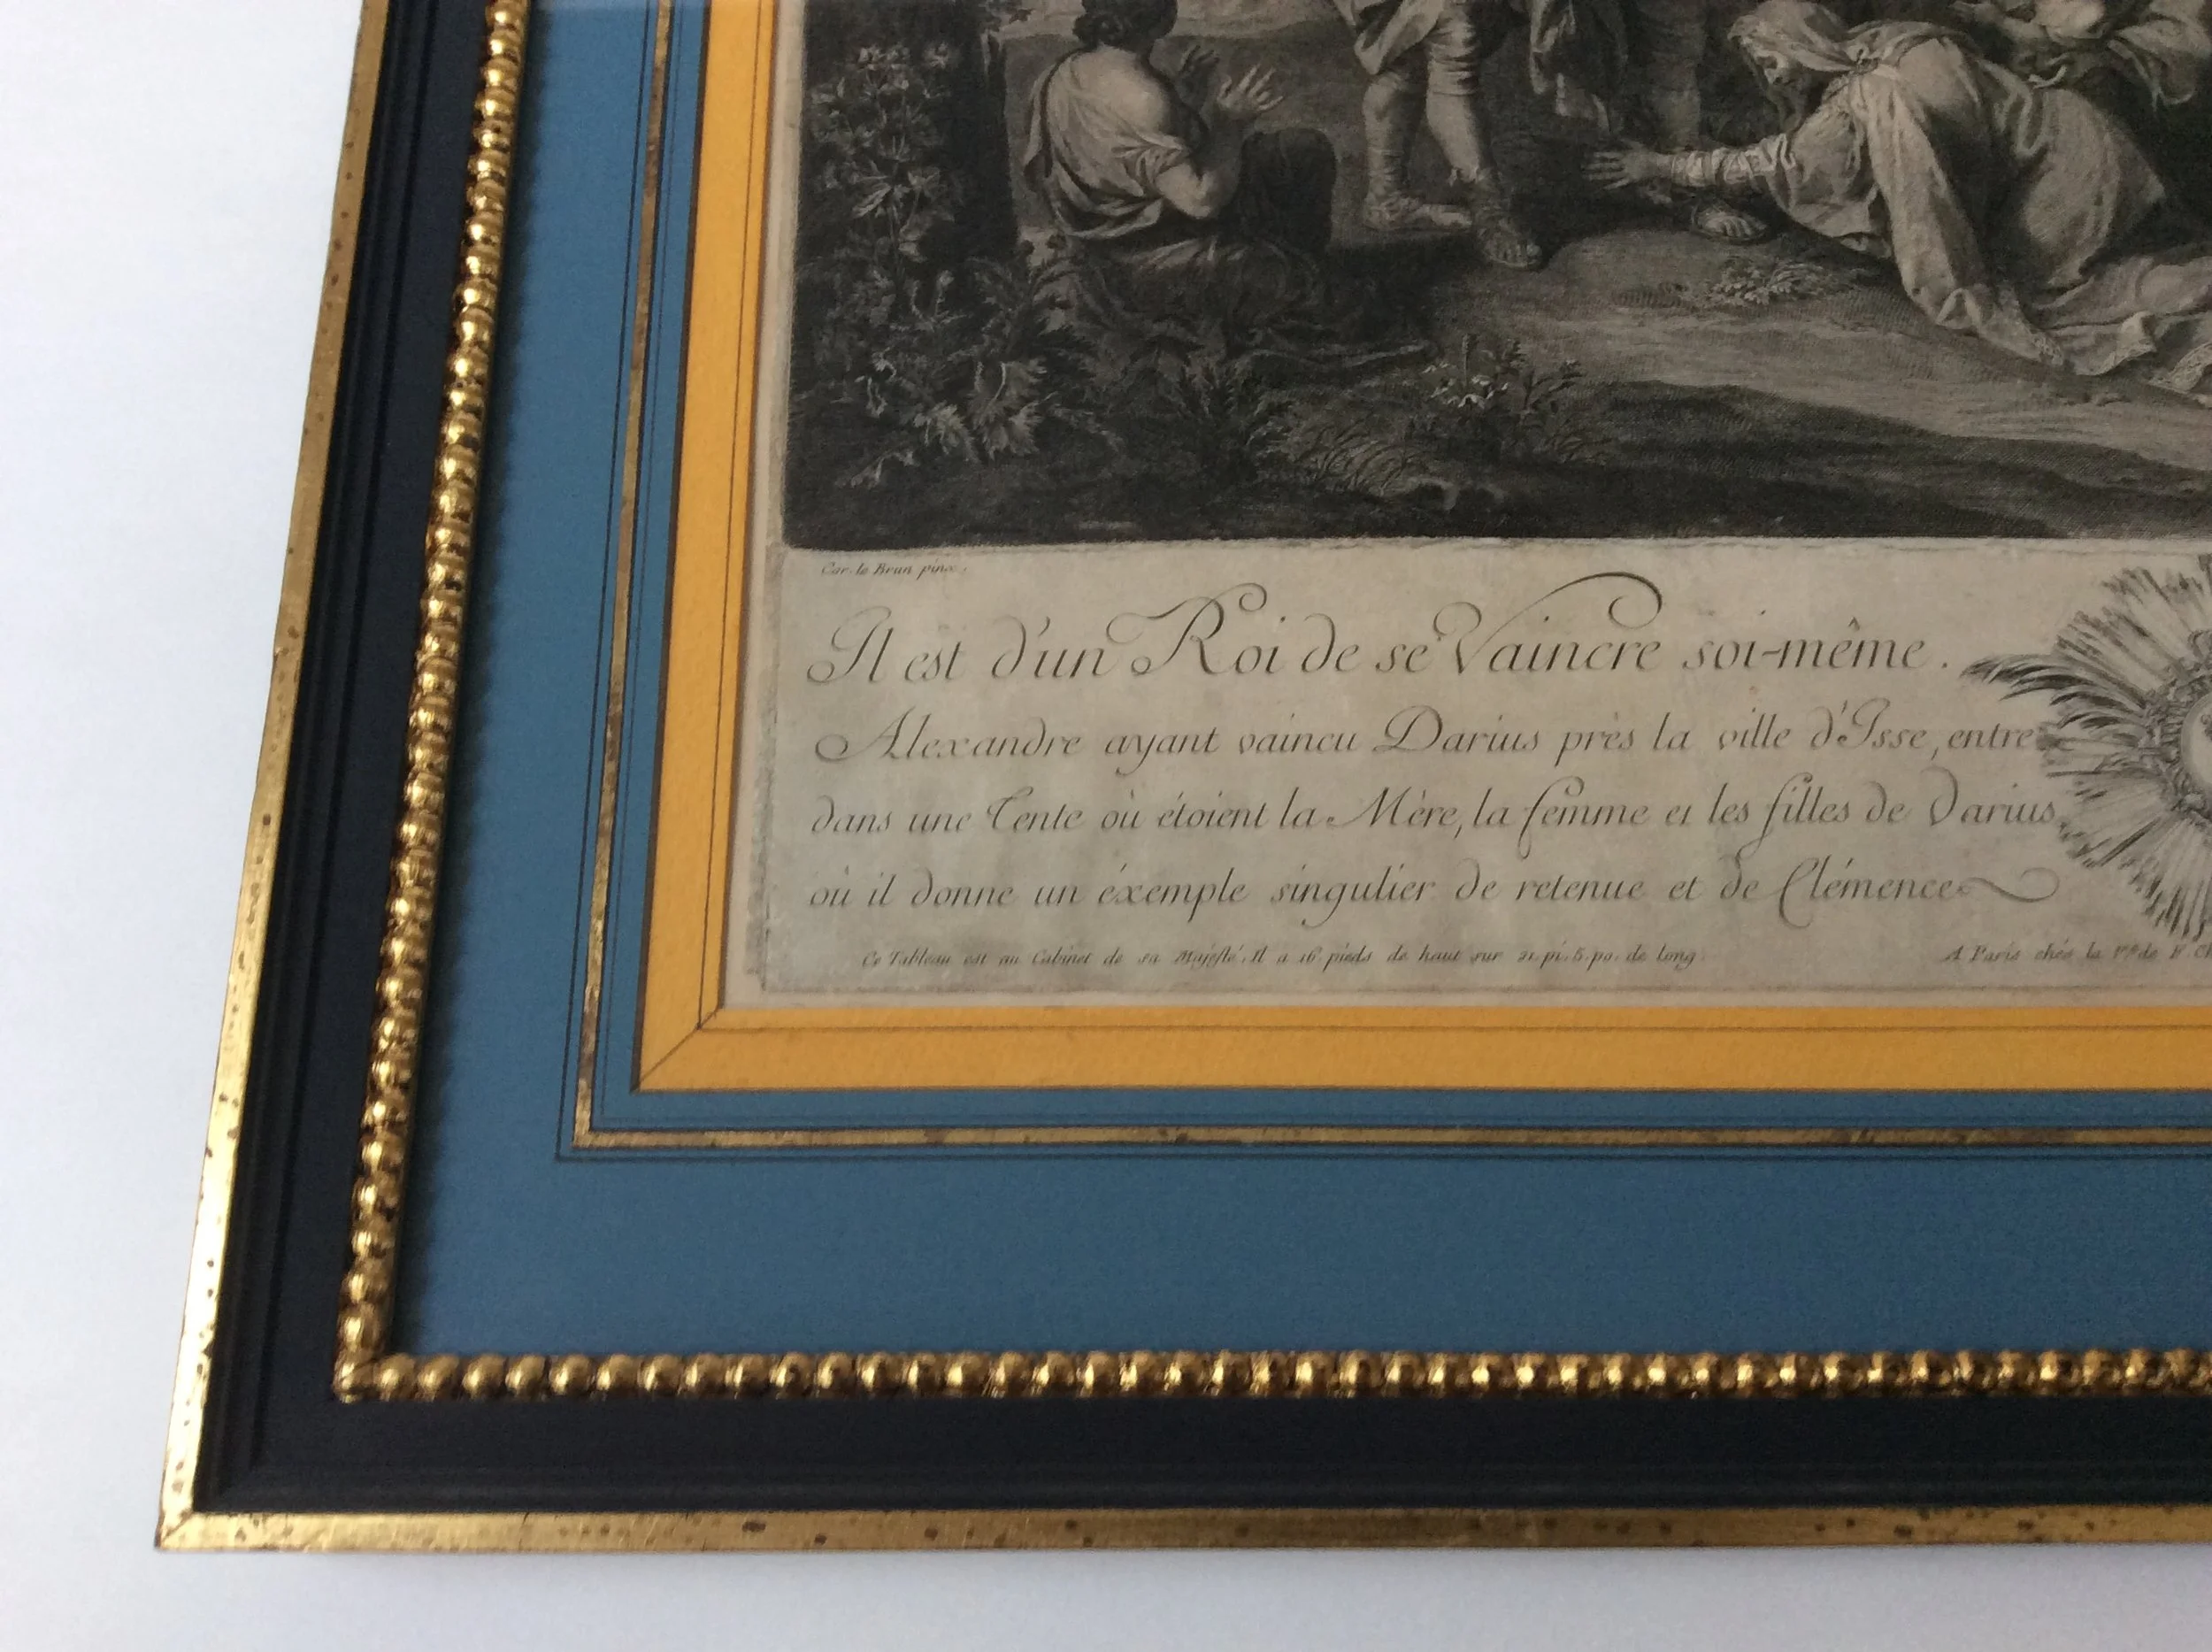 Car. le Brun pinx.
Il est d'un Roi de se Vaincre soi-même.
Alexandre ayant vaincu Darius près la ville d'Isse, entre
dans une Tente où étoient la Mère, la femme et les filles de Darius,
où il donne un éxemple singulier de retenue et de Clémence
Ce Tableau est au Cabinet de sa Majesté. Il a 16. pieds de haut sur 21. pi. 5. po. de long.
A Paris chés la Vve de F. Ch